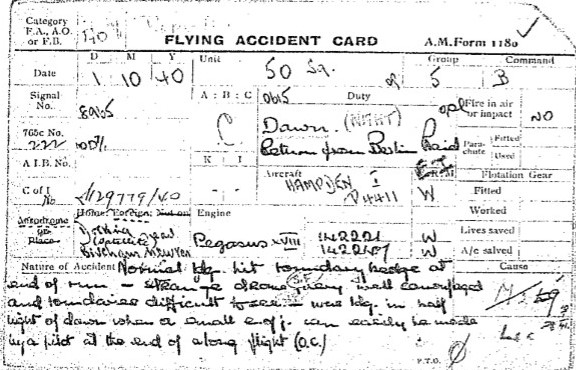 Category
F.A., A.O.
or F.B.
FLYING ACCIDENT CARD
A.M. Form 1180
D M Y
Unit
Group
Command
Date
1 10 40
50 Sq.
5
B
Signal
No.
8965
A : B : C
0615
Duty
op
Fire in air
or impact
NO
765c No.
C
Dawn. (NIGHT)
Return from Berlin Raid
Para-
chute
Fitted
Used
A.I.B. No.
K I
Aircraft
HAMPDEN I
P4411
W
Flotation Gear
Fitted
C of I
No
Worked
Aerodrome
or
Place
Home: Foreign: Not on
Engine
Lives saved
Pegasus XVIII
W
W
A/c salved
Nature of Accident
Normal ldg. hit boundary hedge at
Cause
end of run – strange drome very well camouflaged
and boundaries difficult to see – was ldg. in half
light of dawn when a small error can easily be made
by a pilot at the end of a long flight (O.C.)
P.T.O.